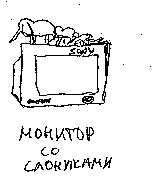 SONY
МОНИТОР
СО
СЛОНИКАМИ